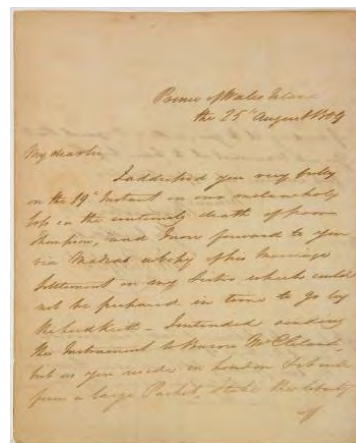 Prince of Wales Island
the 25th August 1809
My dear Sir,
I addressed you very fully
on the 19th Instant on our melancholy
loss in the untimely death of poor
Thompson, and I now forward to you
via Madras a copy of his Marriage
Settlement on my Sister which could
not be prepared in time to go by
the Lord Keith - I intended sending
the Instrument to
but as you reside in London
from a large Packet, I take the liberty
of